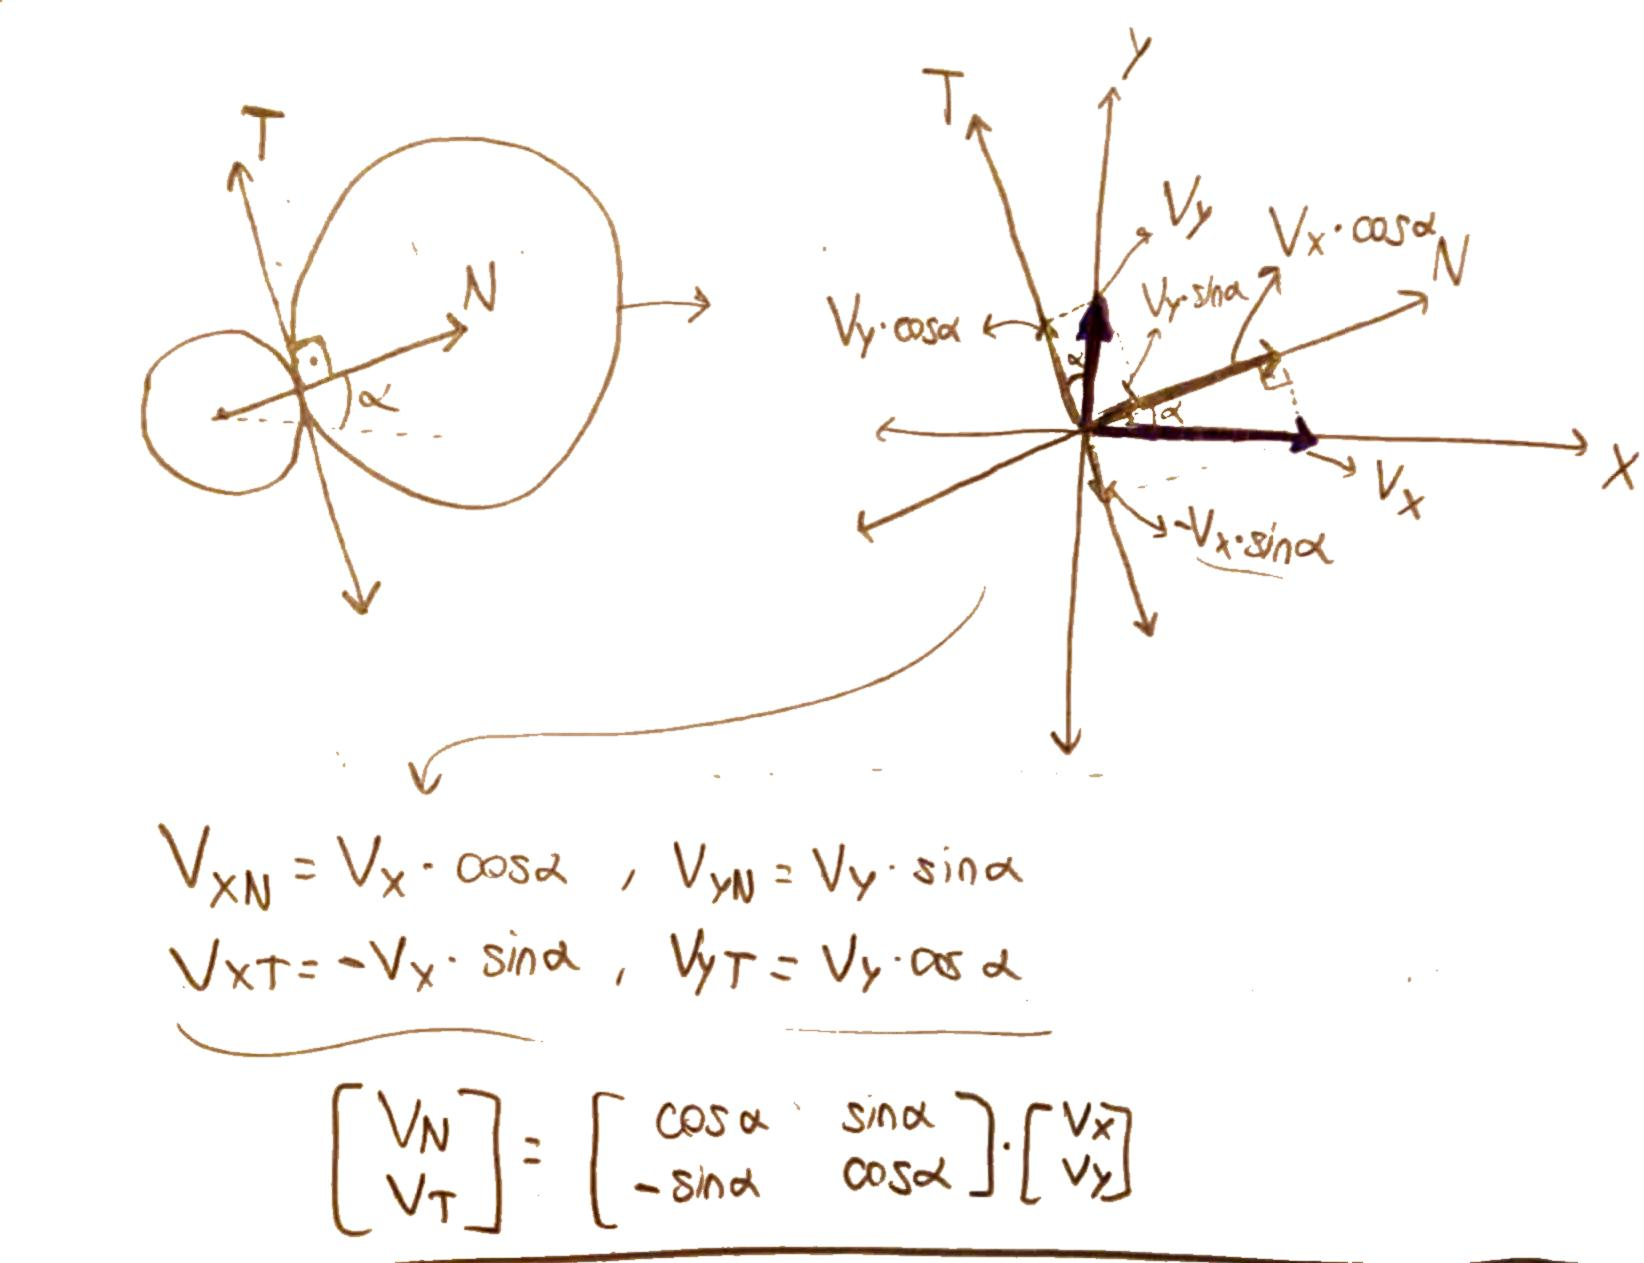 T
N
α
y
T
Vy
Vx · cosα
N
Vy·sinα
Vy·cosα
α
α
x
Vx
-Vx·sinα
VxN = Vx · cosα , VyN = Vy · sinα
VxT = -Vx · sinα , VyT = Vy · cos α
[VN] = [cosα sinα] · [Vx]
[VT] [-sinα cosα] [Vy]